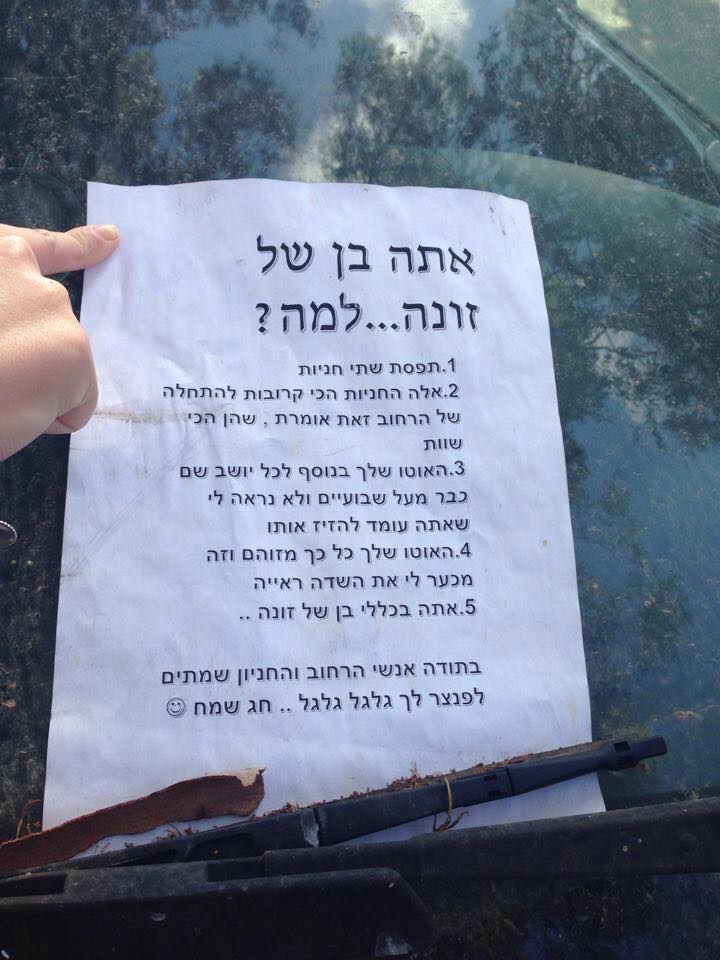 אתה בן של
זונה...למה?
1.תפסת שתי חניות
2.אלה החניות הכי קרובות להתחלה
של הרחוב זאת אומרת , שהן הכי
שוות
3.האוטו שלך בנוסף לכל יושב שם
כבר מעל שבועיים ולא נראה לי
שאתה עומד להזיז אותו
4.האוטו שלך כל כך מזוהם וזה
מכער לי את השדה ראייה
5.אתה בכללי בן של זונה ..
בתודה אנשי הרחוב והחניון שמתים
לפנצר לך גלגל גלגל .. חג שמח ☺